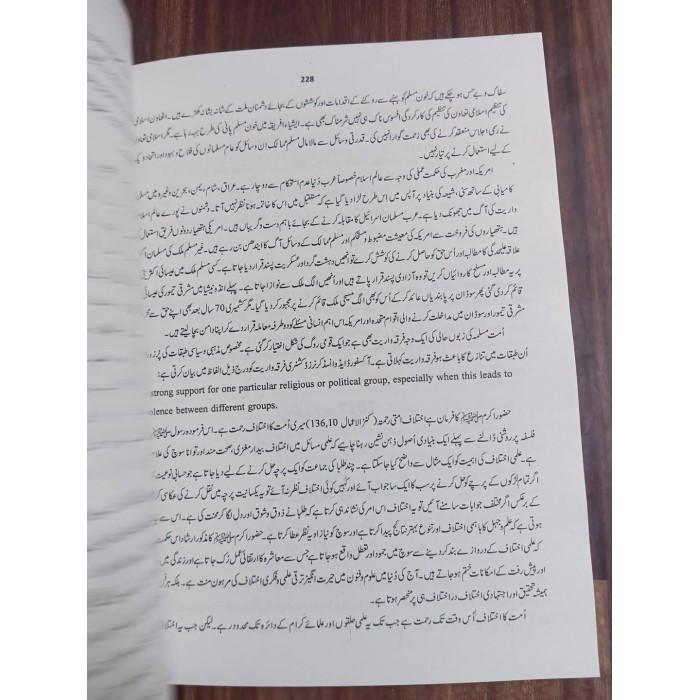 228
سفاک و بے حس ہو چکے ہیں کہ خونِ مسلم کو بہنے سے روکنے کے اقدامات اور کوششوں کے بجائے دشمنانِ ملت کے شانہ بشانہ کھڑے ہیں۔ اتھاون اسلامی
کی تنظیم اسلامی تعاون کی تنظیم کی کارکردگی افسوس ناک ہی نہیں شرمناک بھی ہے۔ ایشیاء، افریقہ میں خونِ مسلم پانی کی طرح بہہ رہا ہے۔ مگر اسلامی تعاون
نے رسمی اجلاس منعقد کرنے کی بھی زحمت گوارا نہیں کی۔ قدرتی وسائل سے مالا مال مسلم ممالک ان وسائل کو عام مسلمانوں کی فلاح و بہبود اور اتحاد و
کے لیے استعمال کرنے پر تیار نہیں۔
امریکہ اور مغرب کی حکمت عملی کی وجہ سے عالم اسلام خصوصاً عرب دُنیا عدم استحکام سے دو چار ہے۔ عراق، شام، یمن، بحرین وغیرہ میں
کامیابی کے ساتھ سنی، شیعہ کی بنیاد پر آپس میں اس طرح لڑا دیا گیا ہے کہ مستقبل میں اس کا خاتمہ ہوتا نظر نہیں آتا۔ دشمنوں نے پورے عالم
واریت کی آگ میں جھونک دیا ہے۔ عرب مسلمان اسرائیل کا مقابلہ کرنے کے بجائے باہم دست و گریباں ہیں۔ امریکی ہتھیار دونوں فریق استعمال
ہیں۔ ہتھیاروں کی فروخت سے امریکہ کی معیشت مضبوط و مستحکم اور مسلم ممالک کے وسائل آگ کا ایندھن بن رہے ہیں۔ غیر مسلم ملک کی مسلمان
علاقہ علیحدگی کا مطالبہ اور اُس حق کو حاصل کرنے کی کوشش کرے تو انھیں دہشت گرد اور عسکریت پسند قرار دیا جاتا ہے۔ کسی مسلم ملک میں عیسائی
پر یہ مطالبہ اور مسلح کارروائیاں کریں تو وہ آزادی پسند قرار پاتے ہیں اور اُنھیں الگ ملک سے نوازا جاتا ہے۔ پہلے انڈونیشیا میں مشرقی تیمور کی عیسائی
قائم کر دی گئی پھر سوڈان پر پابندیاں عائد کر کے اُس کو بھی الگ مسیحی ملک قائم کرنے پر مجبور کر دیا گیا۔ مگر کشمیری 70 سال بعد بھی اپنے حق سے
مشرقی تیمور اور سوڈان میں مداخلت کرنے والی اقوام متحدہ اور امریکہ اس اہم انسانی مسئلے کو دو طرفہ معاملہ قرار دے کر اپنا دامن بچا لیتے ہیں۔
اُمت مسلمہ کی زبوں حالی کی ایک وجہ فرقہ واریت بھی ہے جو ایک قومی روگ کی شکل اختیار کر گئی ہے۔ مخصوص مذہبی و سیاسی طبقات کی
اُن طبقات میں تنازع کا باعث ہو فرقہ واریت کہلاتی ہے۔ آکسفورڈ ایڈوانسڈ لرنرز ڈکشنری فرقہ واریت کو درج ذیل الفاظ میں بیان کرتی ہے:
strong support for one particular religious or political group, especially when this leads to
olence between different groups.
حضور اکرم ﷺ کا فرمان ہے اختلاف امتی رحمتہ (کنز الاعمال 136,10) میری اُمت کا اختلاف رحمت ہے۔ اس فرمودہ رسول ﷺ
فلسفہ پر روشنی ڈالنے سے پہلے ایک بنیادی اُصول ذہن نشین رہنا چاہیے کہ علمی مسائل میں اختلاف بیدار مغزی، صحت مند اور توانا سوچ کی
ہے۔ علمی اختلاف کی اہمیت کو ایک مثال سے واضح کیا جا سکتا ہے۔ چند طلبا کی جماعت کو ایک پرچہ حل کرنے کے لیے دیا جاتا ہے جو حسابی نوعیت
اگر تمام لڑکوں کے پرچے کو حل کرنے پر سب کا ایک سا جواب آئے اور کہیں کوئی اختلاف نظر نہ آئے تو یہ یکسانیت پرچہ میں نقل کرنے کی عکاسی
کے برعکس اگر مختلف جوابات سامنے آئیں تو یہ اختلاف اس امر کی نشاندہی کرتا ہے کہ طلبا نے ذوق و شوق اور دل لگا کر محنت کی ہے۔ اس سے
ہوتی ہے کہ علم و جہل کا باہمی اختلاف اور تنوع بہتر نتائج پیدا کرتا ہے اور سوچ کو نیا زاویہ نظر عطا کرتا ہے۔ حضور اکرم ﷺ کا مذکورہ ارشاد اس
کہ علمی اختلاف کے دروازے بند کر دینے سے سوچ میں جمود اور تعطل واقع ہو جاتا ہے جس سے معاشرہ کا ارتقائی عمل رُک جاتا ہے اور زندگی میں
اور پیش رفت کے امکانات ختم ہو جاتے ہیں۔ آج کی دُنیا میں علوم و فنون میں حیرت انگیز ترقی علمی و فکری اختلاف کی مرہونِ منت ہے۔ بلکہ
ہمیشہ تحقیق اور اجتہادی اختلاف در اختلاف ہی پر منحصر ہوتا ہے۔
اُمت کا اختلاف اُس وقت تک رحمت ہے جب تک یہ علمی حلقوں اور علمائے کرام کے دائرہ تک محدود رہے۔ لیکن جب یہ